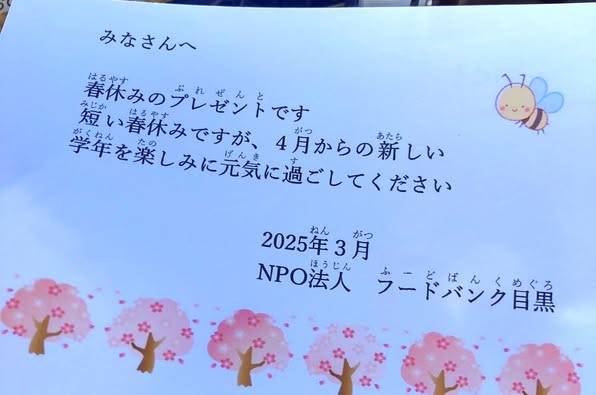 みなさんへ
春休みのプレゼントです
短い春休みですが、４月からの新しい
学年を楽しみに元気に過ごしてください
2025年３月
NPO法人　フードバンク目黒